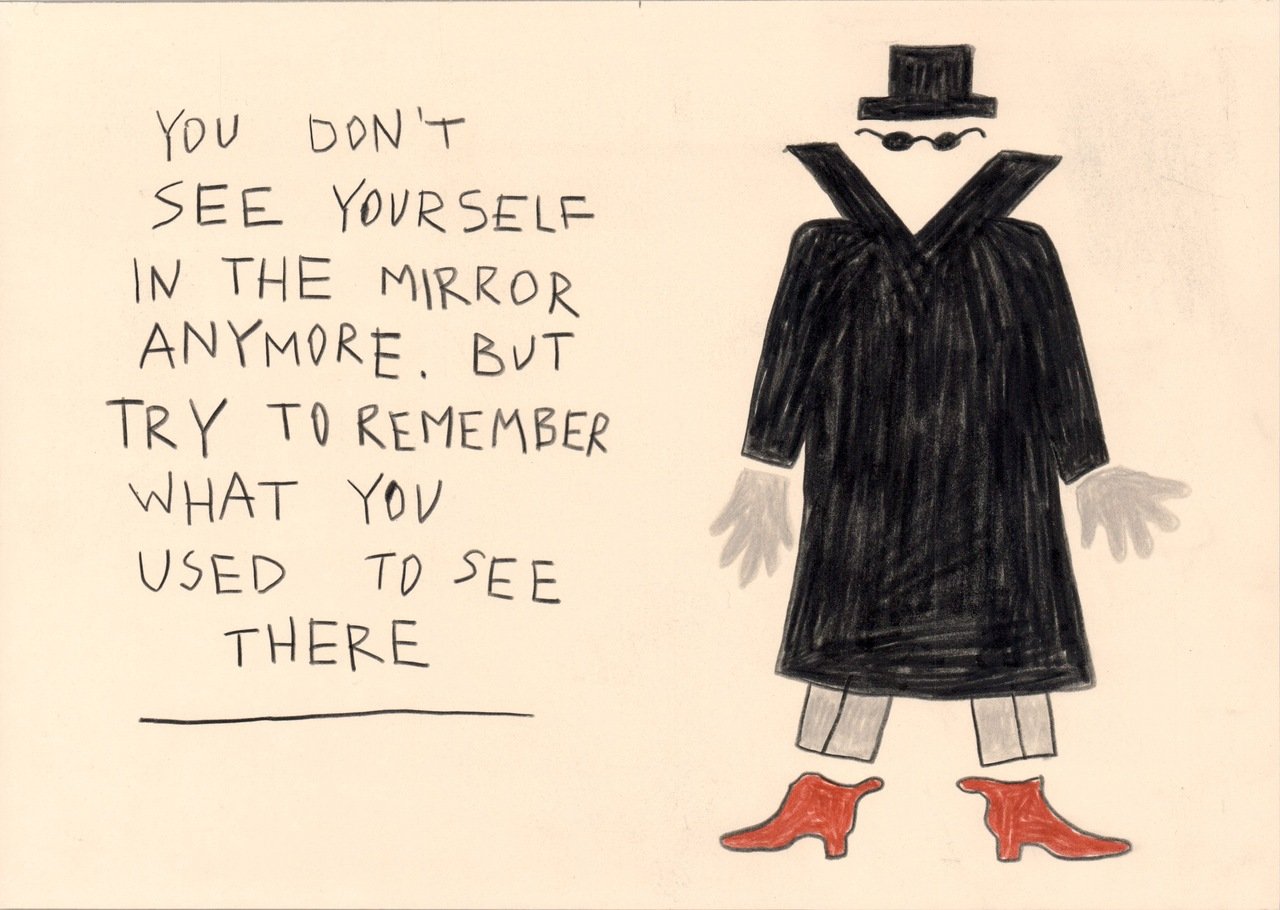 YOU DON'T
SEE YOURSELF
IN THE MIRROR
ANYMORE. BUT
TRY TO REMEMBER
WHAT YOU
USED TO SEE
THERE